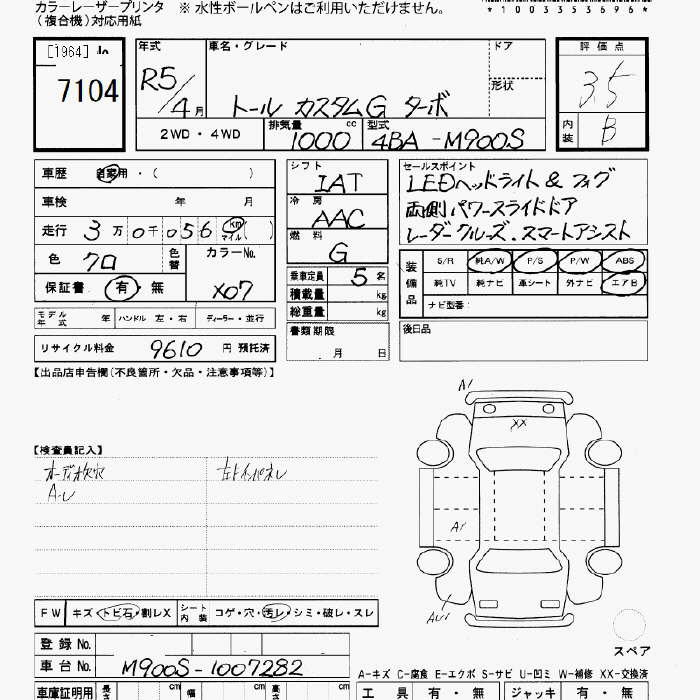 カラーレーザープリンタ ※ 水性ボールペンはご利用いただけません。
(複合機)対応用紙
*1003353696*
[1964] No
7104
年式 車名・グレード ドア
R5/4月 トール カスタムG ターボ 形状
評価点
3.5
2WD・4WD 排気量 1000 cc 型式 4BA-M900S
内装 B
車歴 自家用・( )
シフト IAT
セールスポイント
LEDヘッドライト & フォグ
両側パワースライドドア
レーダークルーズ.スマートアシスト
車検 年 月
冷房 AAC
走行 3万0千056 km マイル ( )
燃料 G
色 クロ 色替 カラーNo. X07
保証書 有・無
乗車定員 5名
積載量 kg
総重量 kg
装備品 S/R 純A/W P/S P/W ABS
純TV 純ナビ 革シート 外ナビ エアB
ナビ型番:
モデル年式 年 ハンドル 左・右 ディーラー・並行
書類期限 月 日
後日品
リサイクル料金 9610 円 預託済
【出品店申告欄(不良箇所・欠品・注意事項等)】
A1
XX
【検査員記入】
オーディオ欠
A-U
A1
FW キズ・トビ石・割レX シート内装 コゲ・穴・汚レ・シミ・破レ・スレ
スペア
登録No.
車台No. M900S-1007282
A-キズ C-腐食 E-エクボ S-サビ U-凹ミ W-補修 XX-交換済
車庫証明用 長さ cm 幅 cm 高さ cm
工具 有・無 ジャッキ 有・無